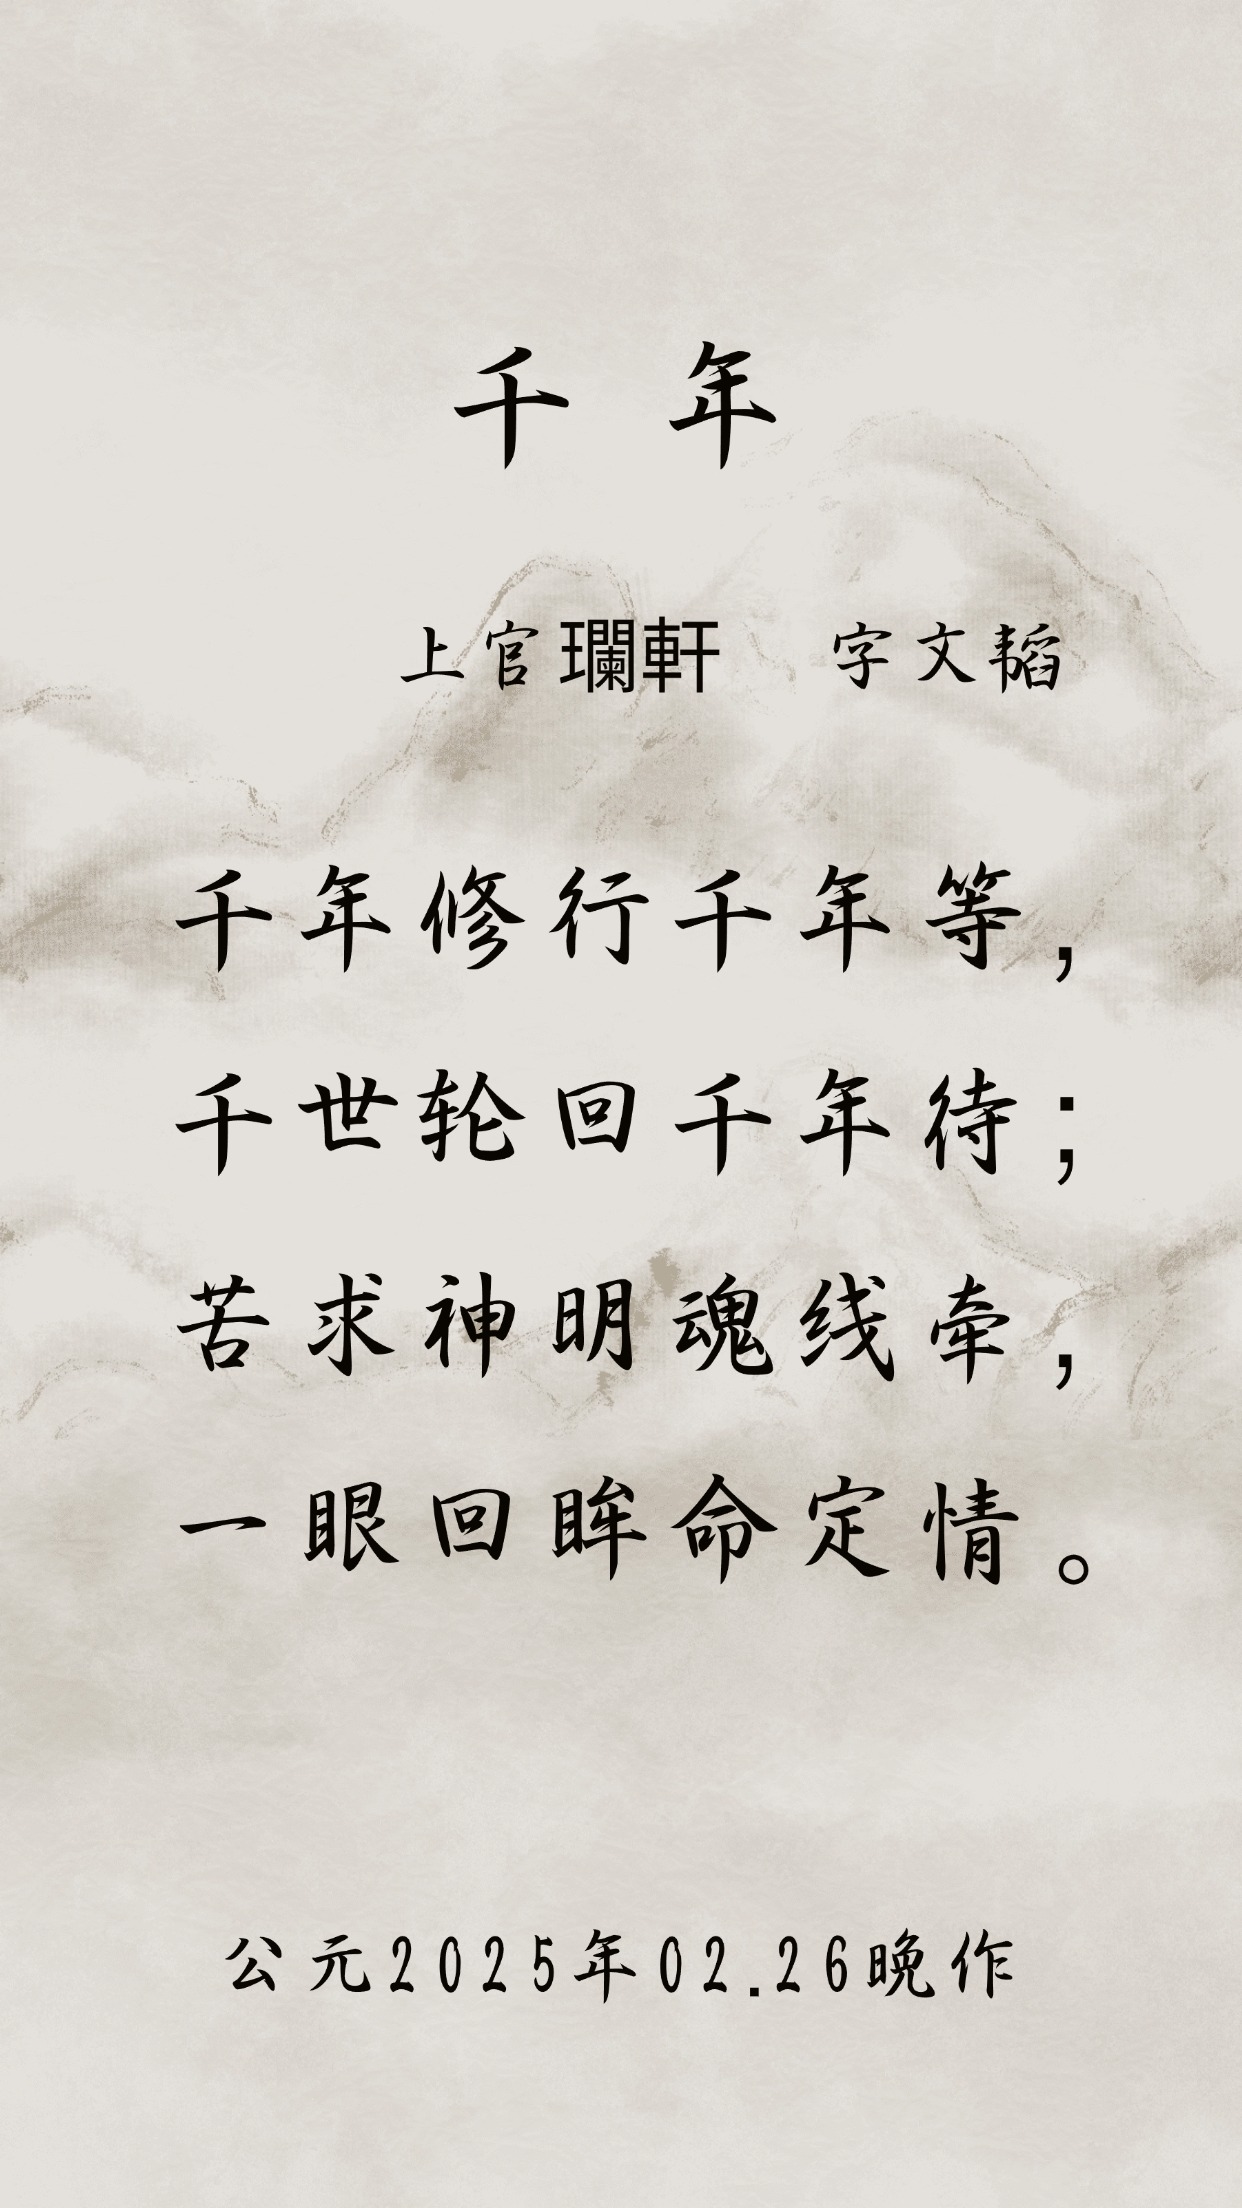 千年
上官瓓軒 字文韬
千年修行千年等，
千世轮回千年待；
苦求神明魂线牵，
一眼回眸命定情。
公元2025年02.26晚作